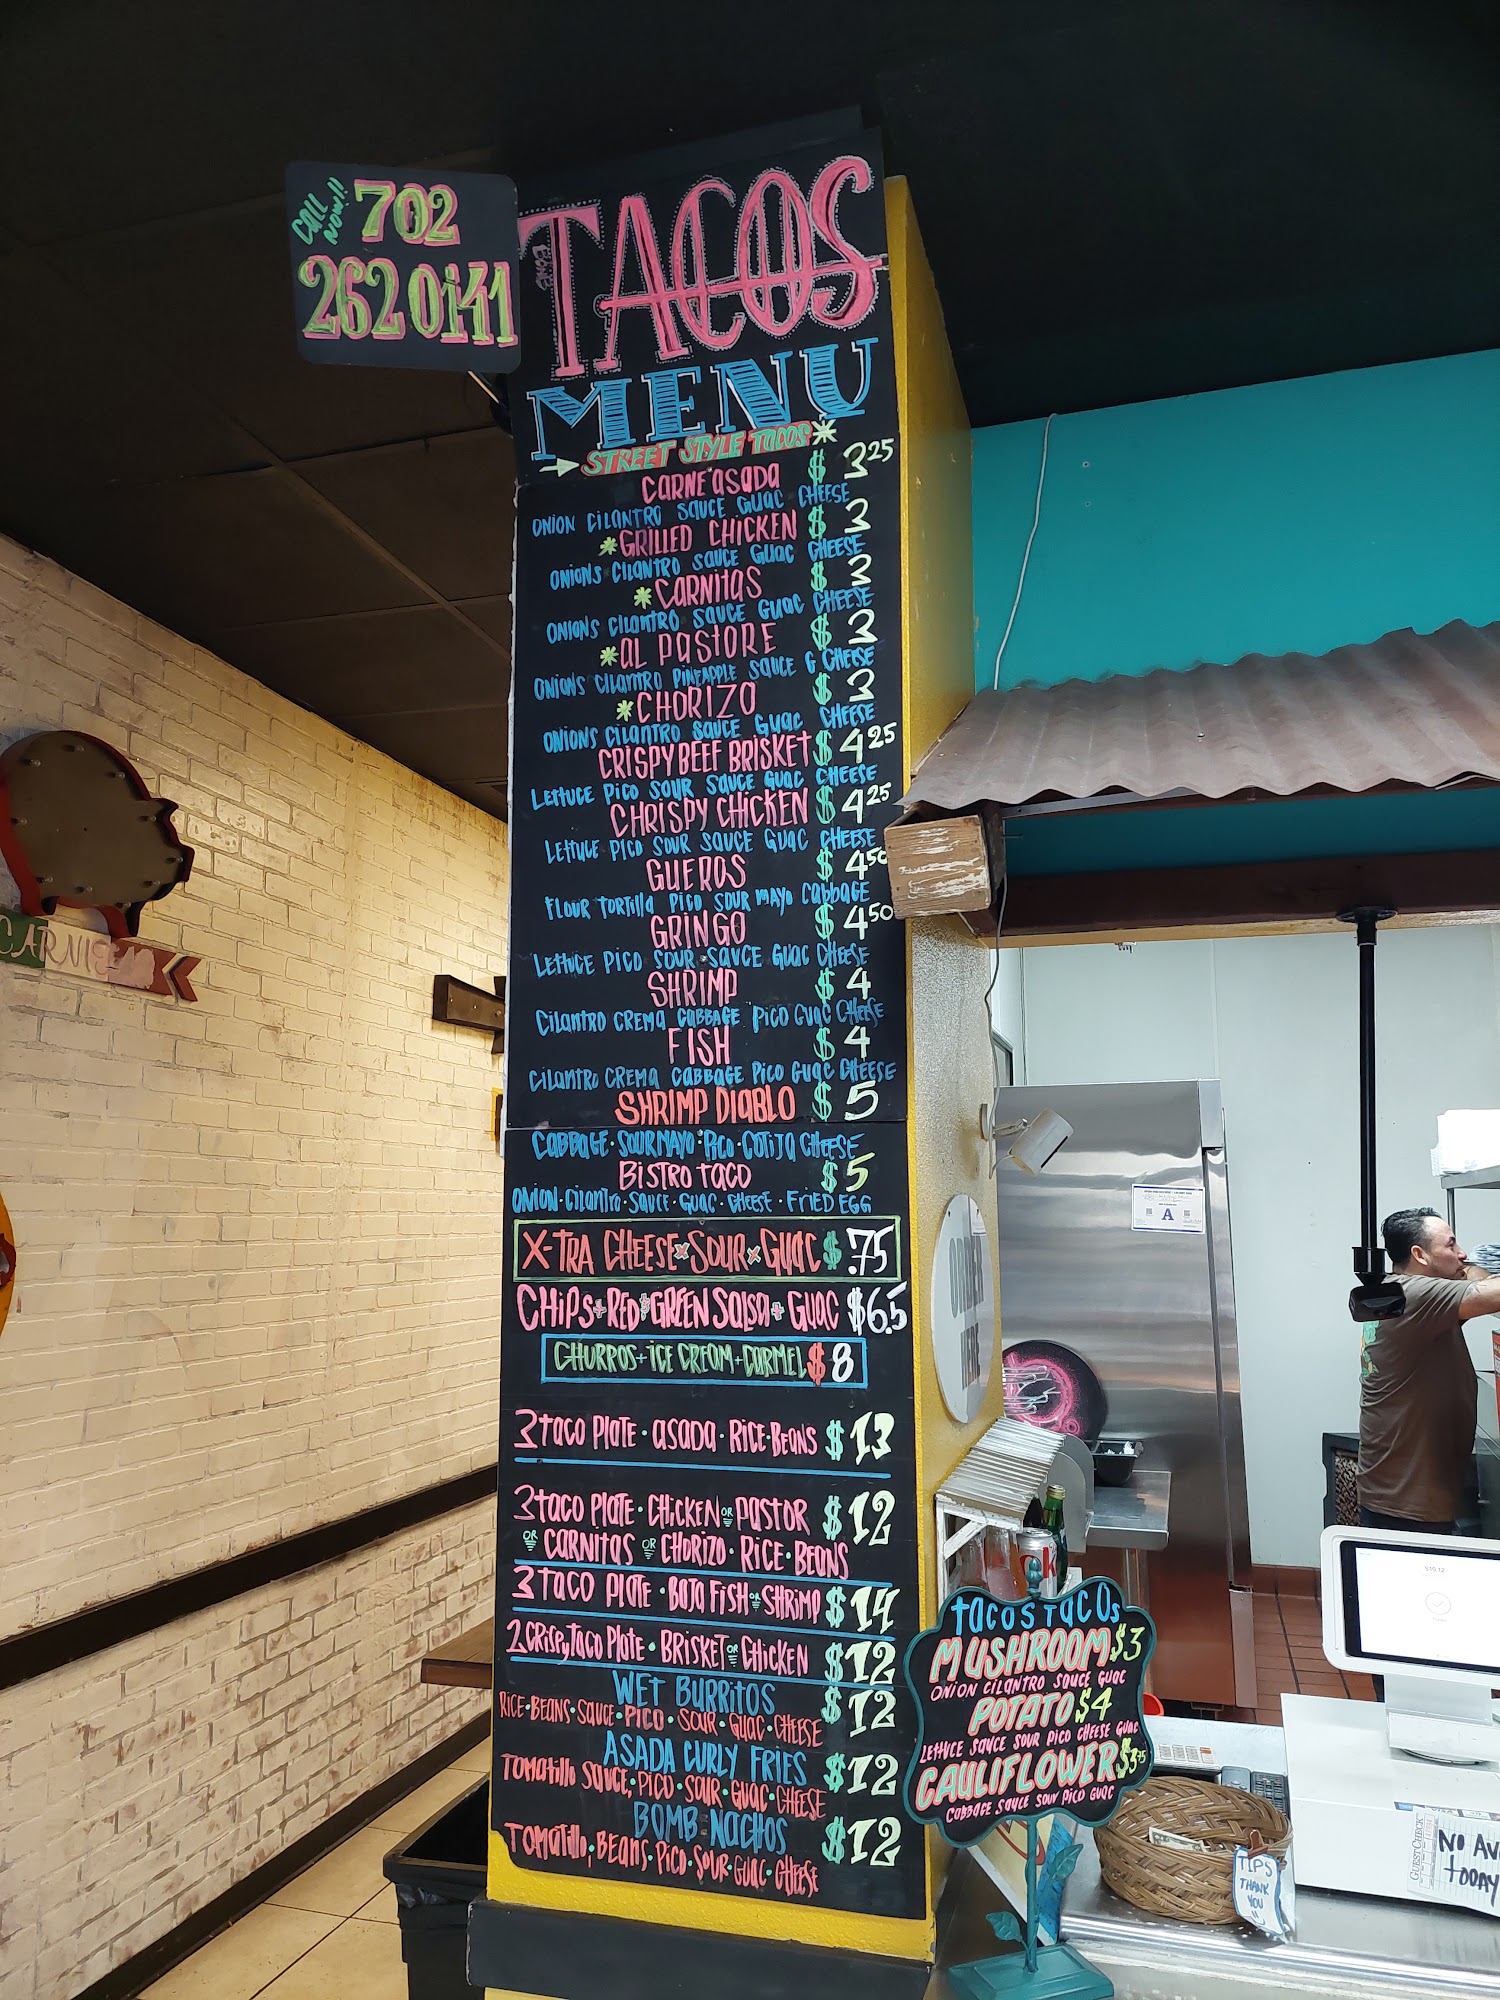 CALL NOW!! 702
262 0141
TACOS
MENU
STREET STYLE TACOS
CARNE ASADA $3.25
ONION CILANTRO SAUCE GUAC CHEESE
*GRILLED CHICKEN $3
ONIONS CILANTRO SAUCE GUAC CHEESE
*CARNITAS $3
ONIONS CILANTRO SAUCE GUAC CHEESE
*AL PASTORE $3
ONIONS CILANTRO PINEAPPLE SAUCE G CHEESE
*CHORIZO $3
ONIONS CILANTRO SAUCE GUAC CHEESE
CRISPY BEEF BRISKET $4 25
LETTUCE PICO SOUR SAUCE GUAC CHEESE
CHRISPY CHICKEN $4 25
LETTUCE PICO SOUR SAUCE GUAC CHEESE
GUEROS $4 50
FLOUR TORTILLA PICO SOUR MAYO CABBAGE
GRINGO $4 50
LETTUCE PICO SOUR SAUCE GUAC CHEESE
SHRIMP $4
CILANTRO CREMA CABBAGE PICO GUAC CHEESE
FISH $4
CILANTRO CREMA CABBAGE PICO GUAC CHEESE
SHRIMP DIABLO $5
CABBAGE · SOUR MAYO · PICO · COTIJA CHEESE
BISTRO TACO $5
ONION · CILANTRO · SAUCE · GUAC · CHEESE · FRIED EGG
X-TRA CHEESE x SOUR x GUAC $.75
CHIPS + RED + GREEN SALSA + GUAC $6.5
CHURROS + ICE CREAM + CARMEL $8
3 TACO PLATE · ASADA · RICE · BEANS $13
3 TACO PLATE · CHICKEN OR PASTOR $12
OR CARNITAS OR CHORIZO · RICE · BEANS
3 TACO PLATE · BAJA FISH OR SHRIMP $14
2 CRISPY TACO PLATE · BRISKET OR CHICKEN $12
WET BURRITOS $12
RICE · BEANS · SAUCE · PICO · SOUR · GUAC · CHEESE
ASADA CURLY FRIES $12
TOMATILLO SAUCE, PICO · SOUR · GUAC · CHEESE
BOMB NACHOS $12
TOMATILLO, BEANS, PICO · SOUR · GUAC · CHEESE
CARNI
ORDER
HERE
A
TACOS TACOS
MUSHROOM $3
ONION CILANTRO SAUCE GUAC
POTATO $4
LETTUCE SAUCE SOUR PICO CHEESE GUAC
CAULIFLOWER $3.75
CABBAGE SAUCE SOUR PICO GUAC
$10.12
TIPS
THANK
YOU
GUEST CHECK
NO AV
TODAY